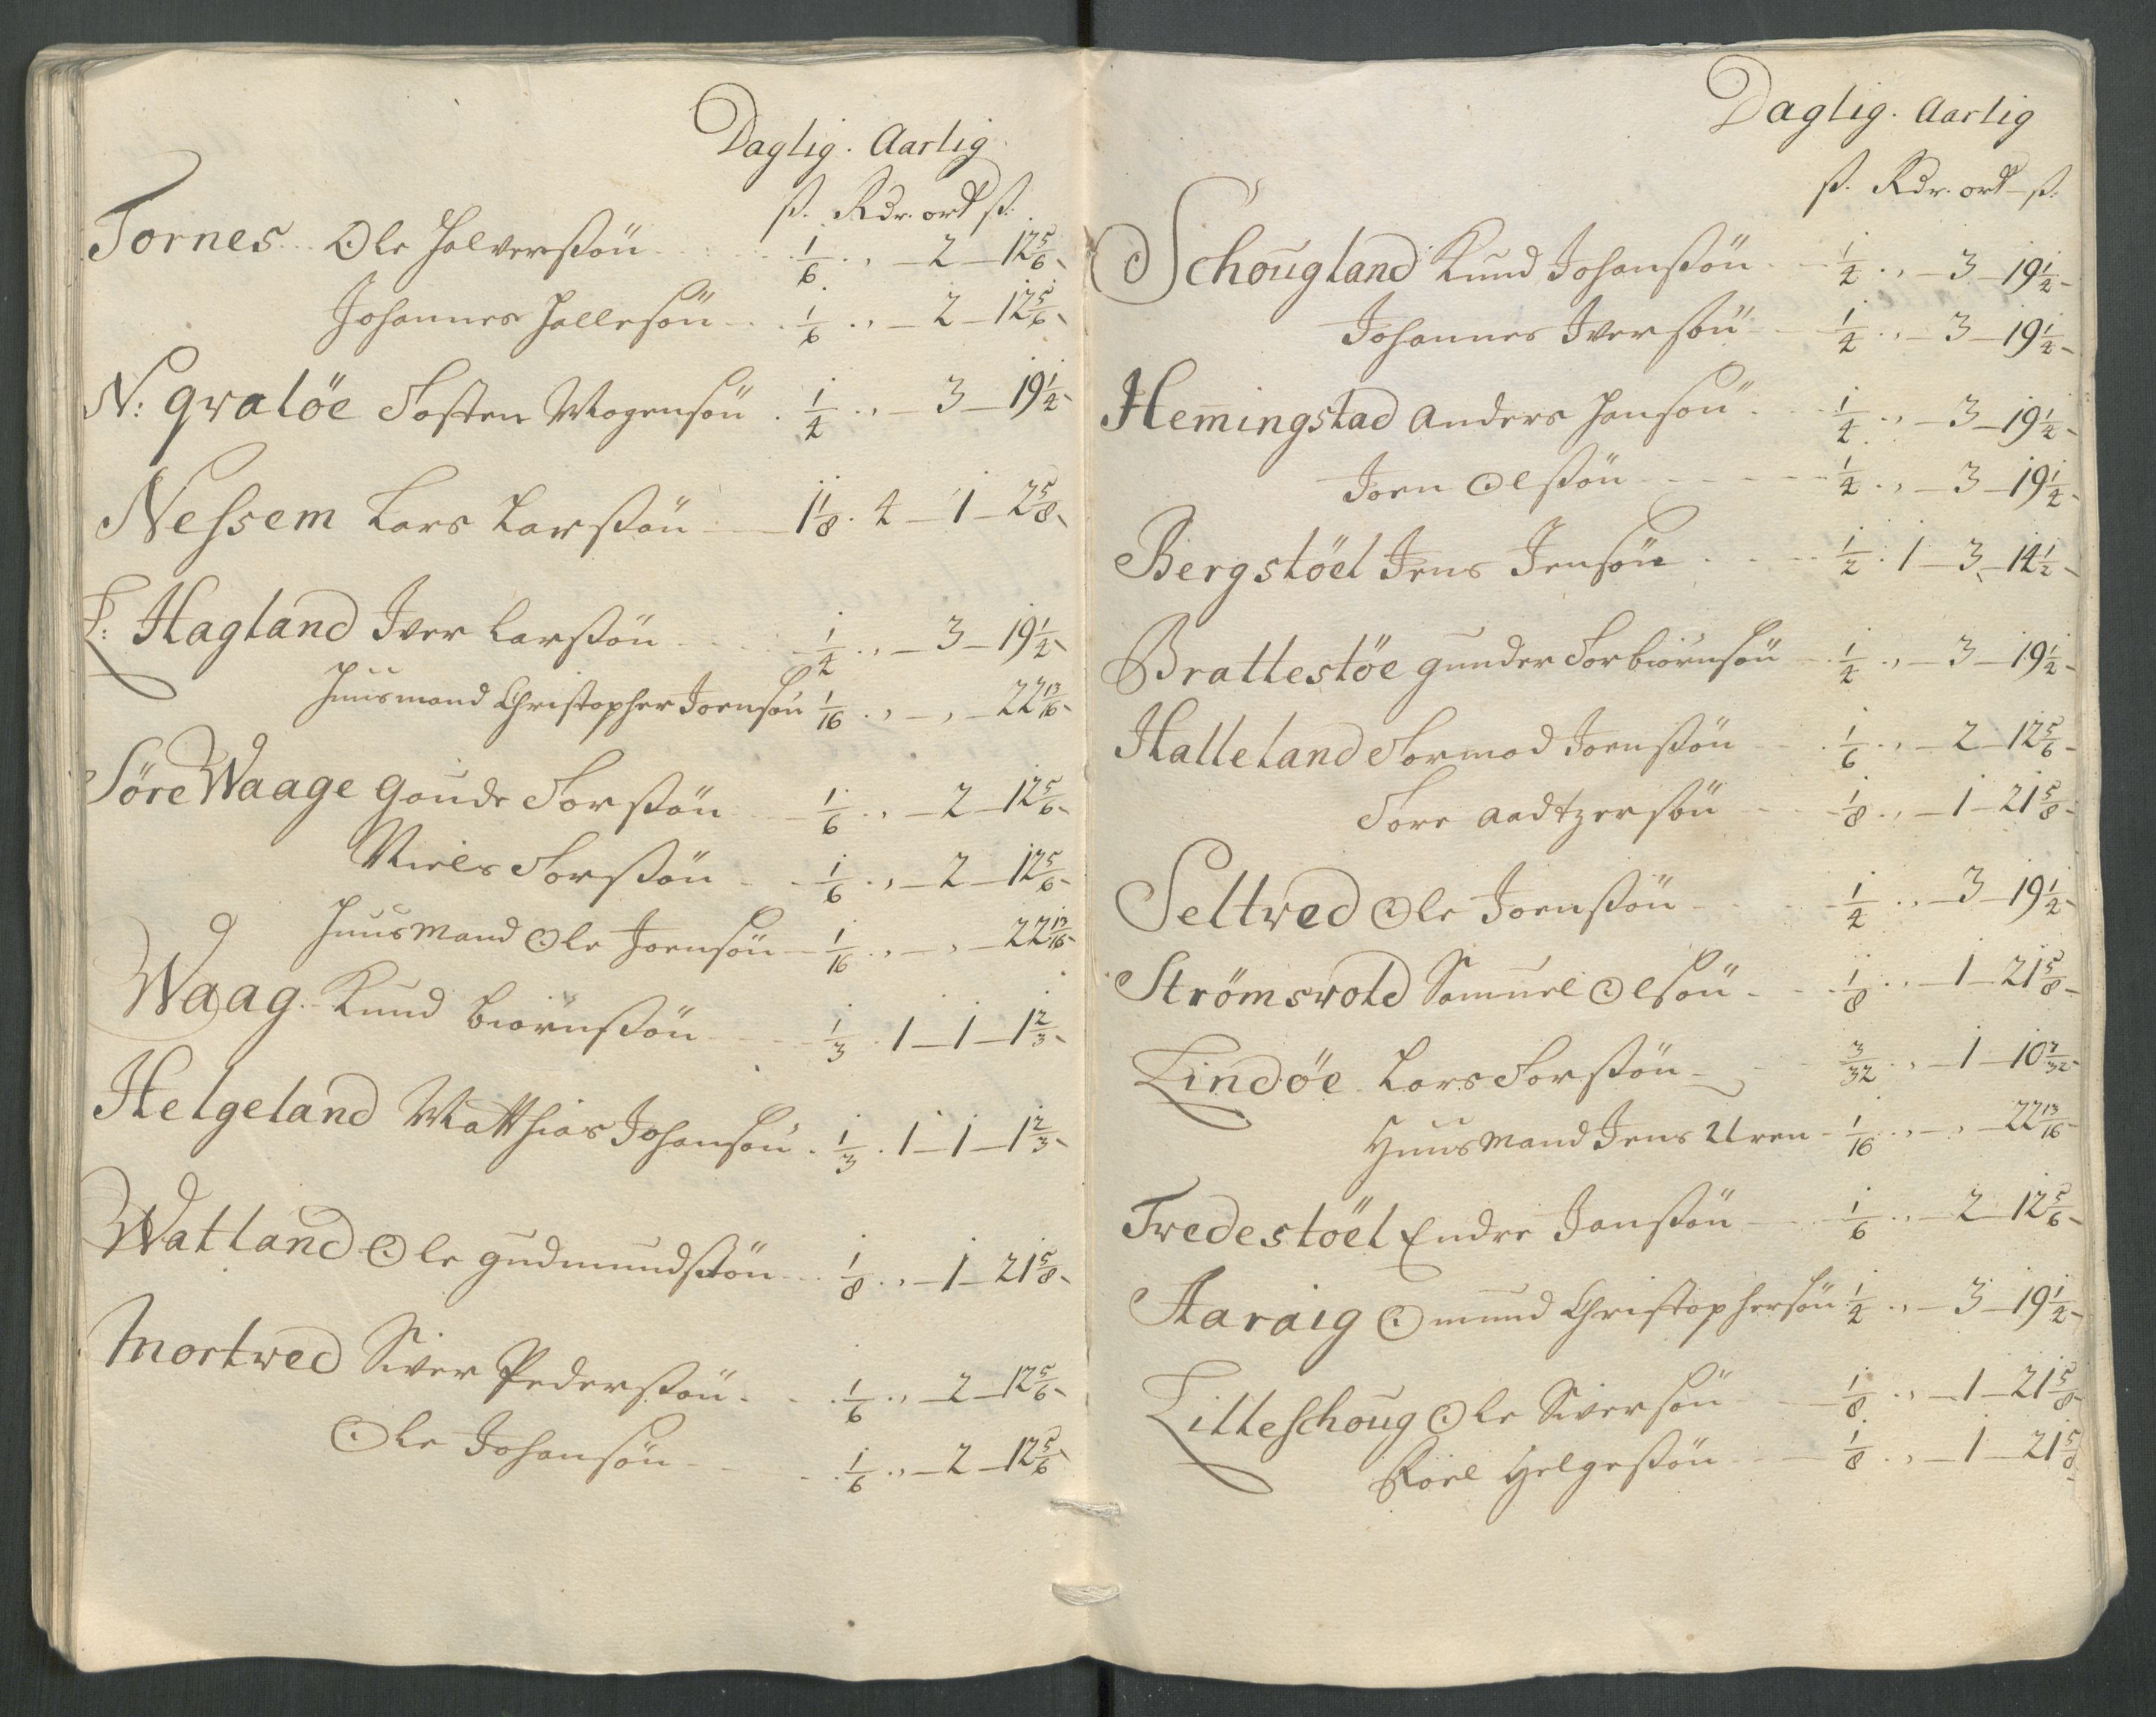 Daglig. Aarlig
ß. Rdr. ort ß.
Tornes Ole Halverßön 1/6 ,, 2 12 5/6
Johannes Hallesön 1/6 ,, 2 12 5/6
N: qvaløe Tosten Mogensön 1/4 ,, 3 19 1/4
Nessem Lars Larßön 1 1/8 4 1 2 5/8
L: Hagland Iver Larßön 1/4 ,, 3 19 1/4
Huusmand Christopher Joensön 1/16 ,, ,, 22 13/16
Söre Waage Goude Torßön 1/6 ,, 2 12 5/6
Niels Torßön 1/6 ,, 2 12 5/6
Huusmand Ole Joensön 1/16 ,, ,, 22 13/16
Waag Knud Biörnßön 1/3 1 1 1 2/3
Helgeland Matthias Johansön 1/3 1 1 1 2/3
Watland Ole Gudmundßön 1/8 ,, 1 21 5/8
Mortved Siver Pederßön 1/6 ,, 2 12 5/6
Ole Johansön 1/6 ,, 2 12 5/6
Daglig. Aarlig
ß. Rdr. ort ß.
Schougland Knud Johanßön 1/4 ,, 3 19 1/4
Johannes Iversön 1/4 ,, 3 19 1/4
Hem̄ingstad Anders Hansön 1/4 ,, 3 19 1/4
Joen Olßön 1/4 ,, 3 19 1/4
Bergstöel Jens Jensön 1/2 1 3 14 1/2
Brattestöe Gunder Torbiörnsön 1/4 ,, 3 19 1/4
Halleland Tormod Joenßön 1/6 ,, 2 12 5/6
Tore Aadtzersön 1/8 ,, 1 21 5/8
Seltved Ole Joenßön 1/4 ,, 3 19 1/4
Strömsvold Samuel Olsön 1/8 ,, 1 21 5/8
Lindöe Lars Torßön 3/32 ,, 1 10 7/32
Huusmand Jens Uren 1/16 ,, ,, 22 13/16
Tredestöel Endre Janßön 1/6 ,, 2 12 5/6
Aaraig Omund Christophersön 1/4 ,, 3 19 1/4
Litleschoug Ole Siversön 1/8 ,, 1 21 5/8
Poel Helgeßön 1/8 ,, 1 21 5/8